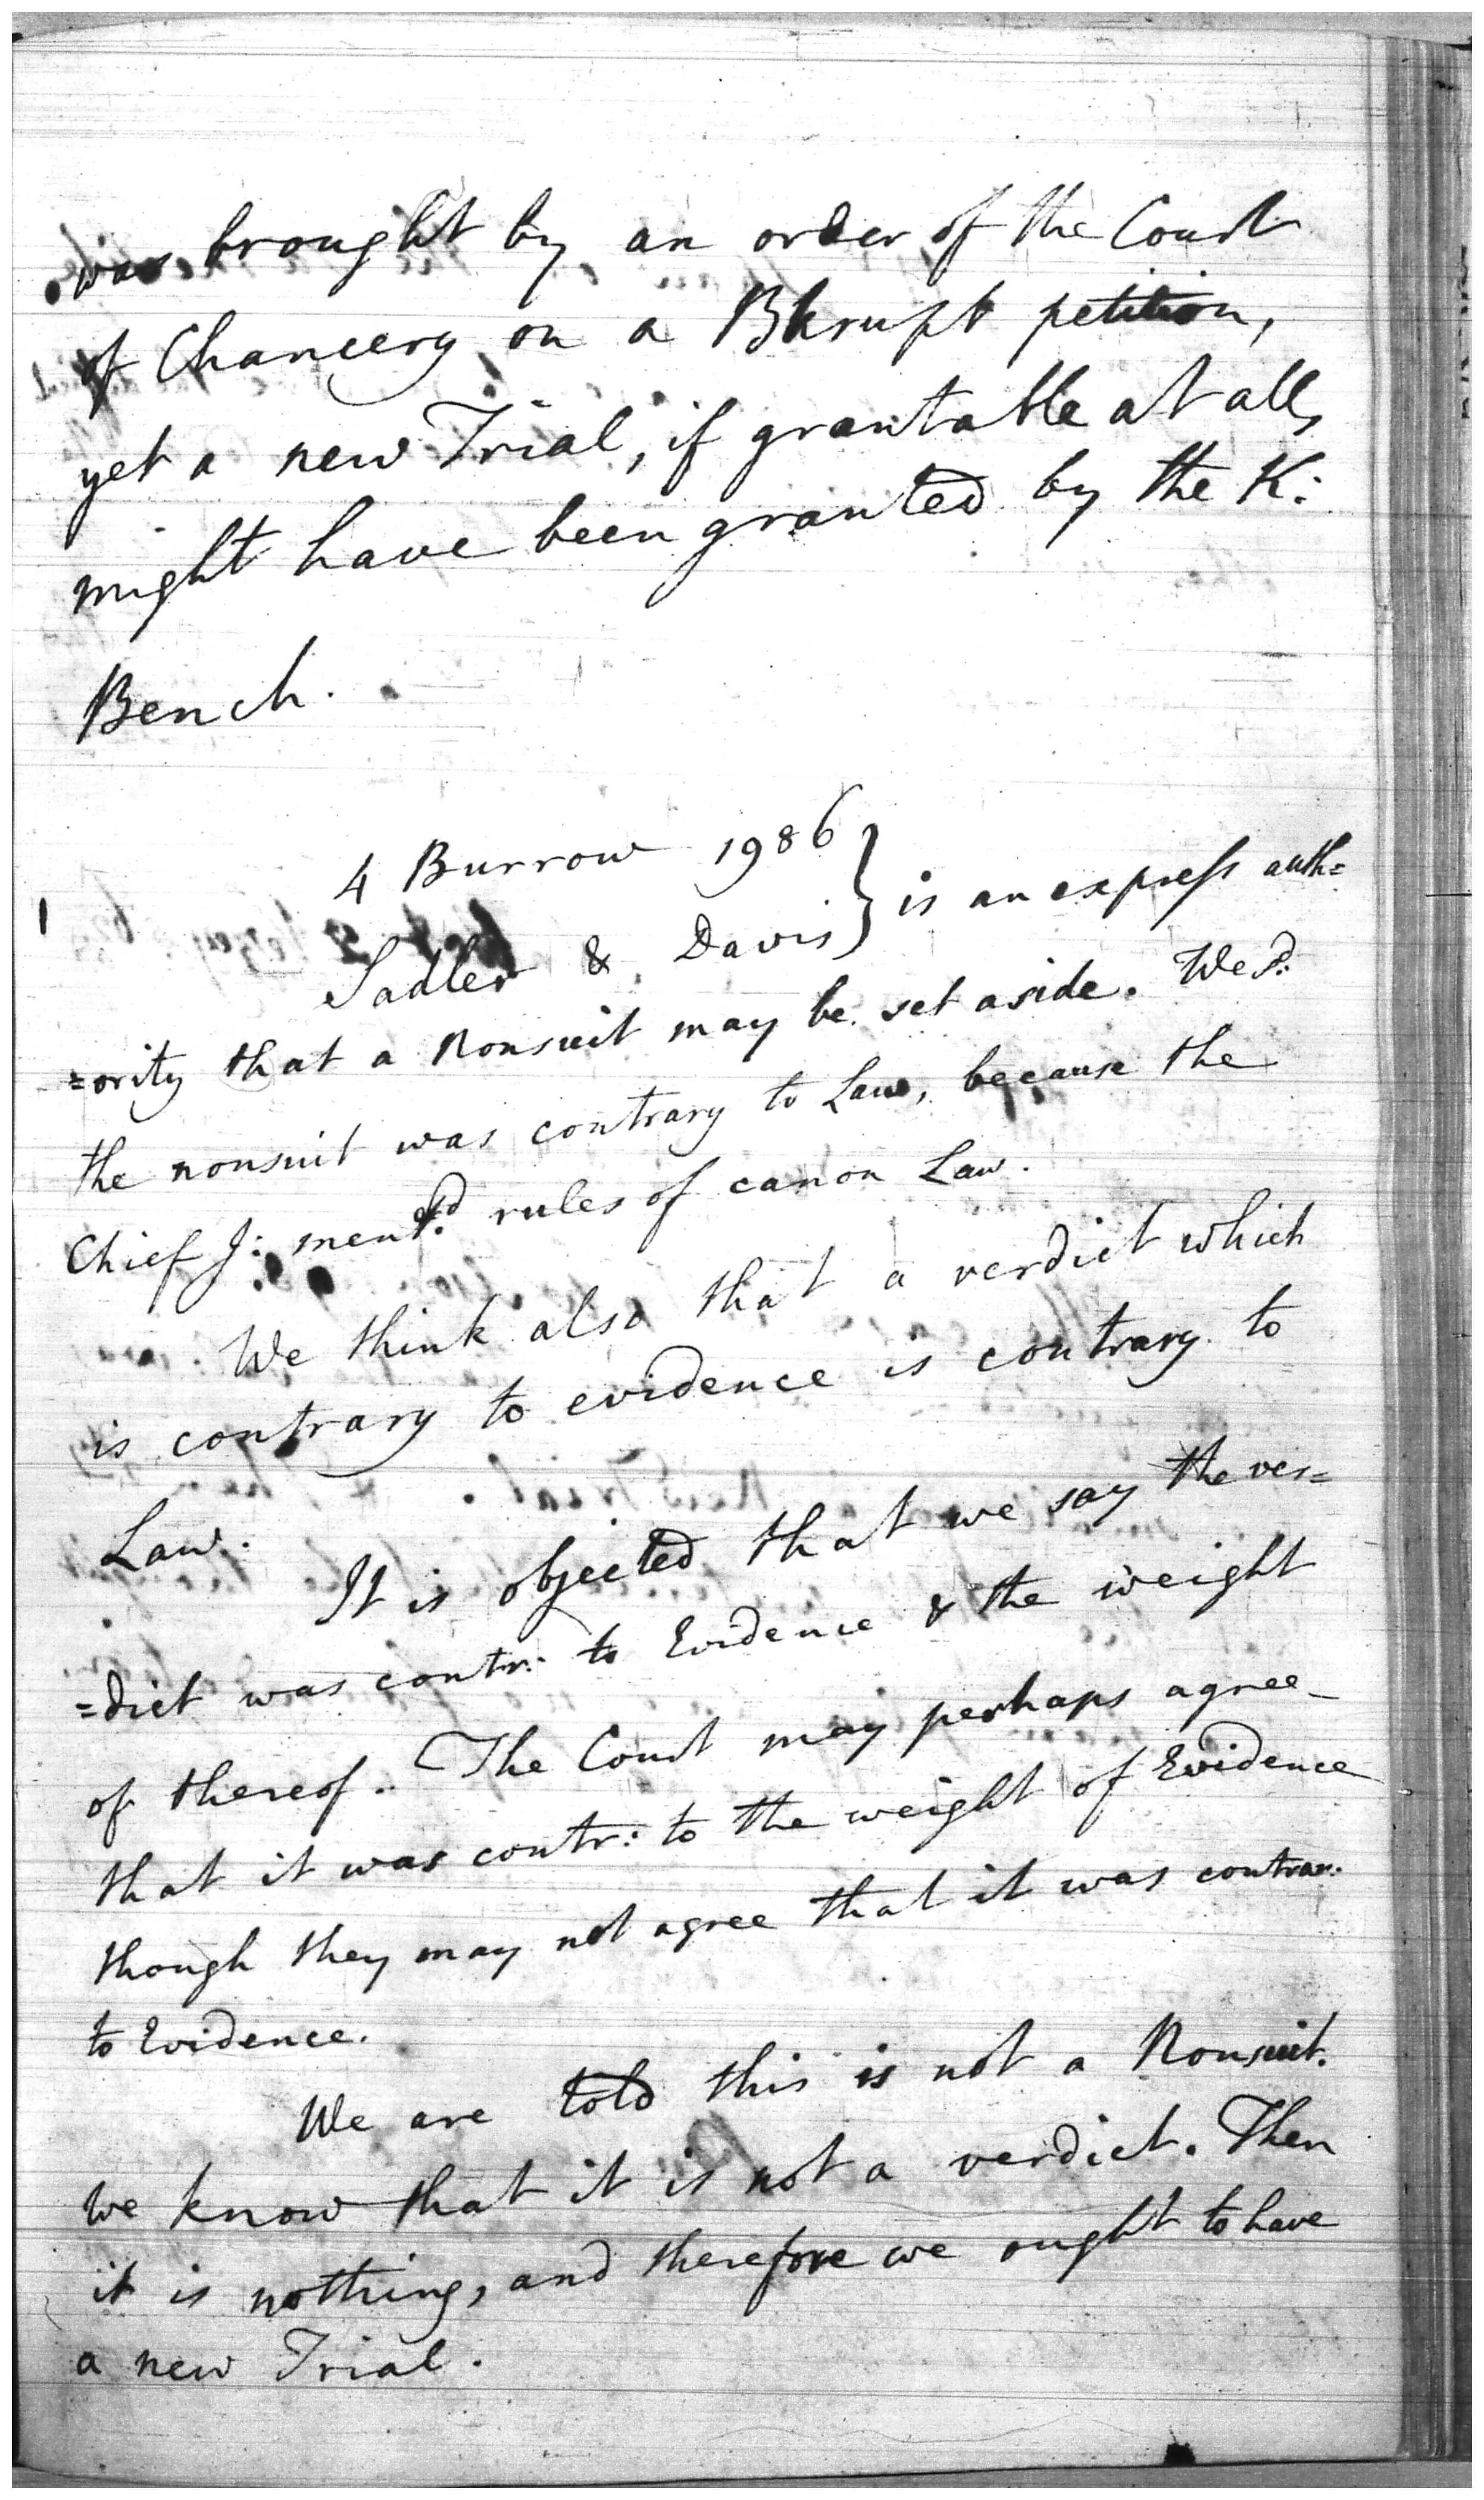 was brought by an order of the Court
of Chancery on a Bkrupt petition,
yet a new Trial, if grantable at all,
might have been granted by the K:
Bench.
4 Burrow 1986
Sadler & Davis } is an express auth=
=ority that a Nonsuit may be set aside. We sd:
the nonsuit was contrary to Law, because the
Chief J: ment:d rules of canon Law.
We think also that a verdict which
is contrary to evidence is contrary to
Law.
It is objected that we say the ver=
=dict was contr: to Evidence & the weight
of thereof. The Court may perhaps agree
that it was contr: to the weight of Evidence
though they may not agree that it was contrar:
to Evidence.
We are told this is not a Nonsuit.
We know that it is not a verdict. Then
it is nothing, and therefore we ought to have
a new Trial.